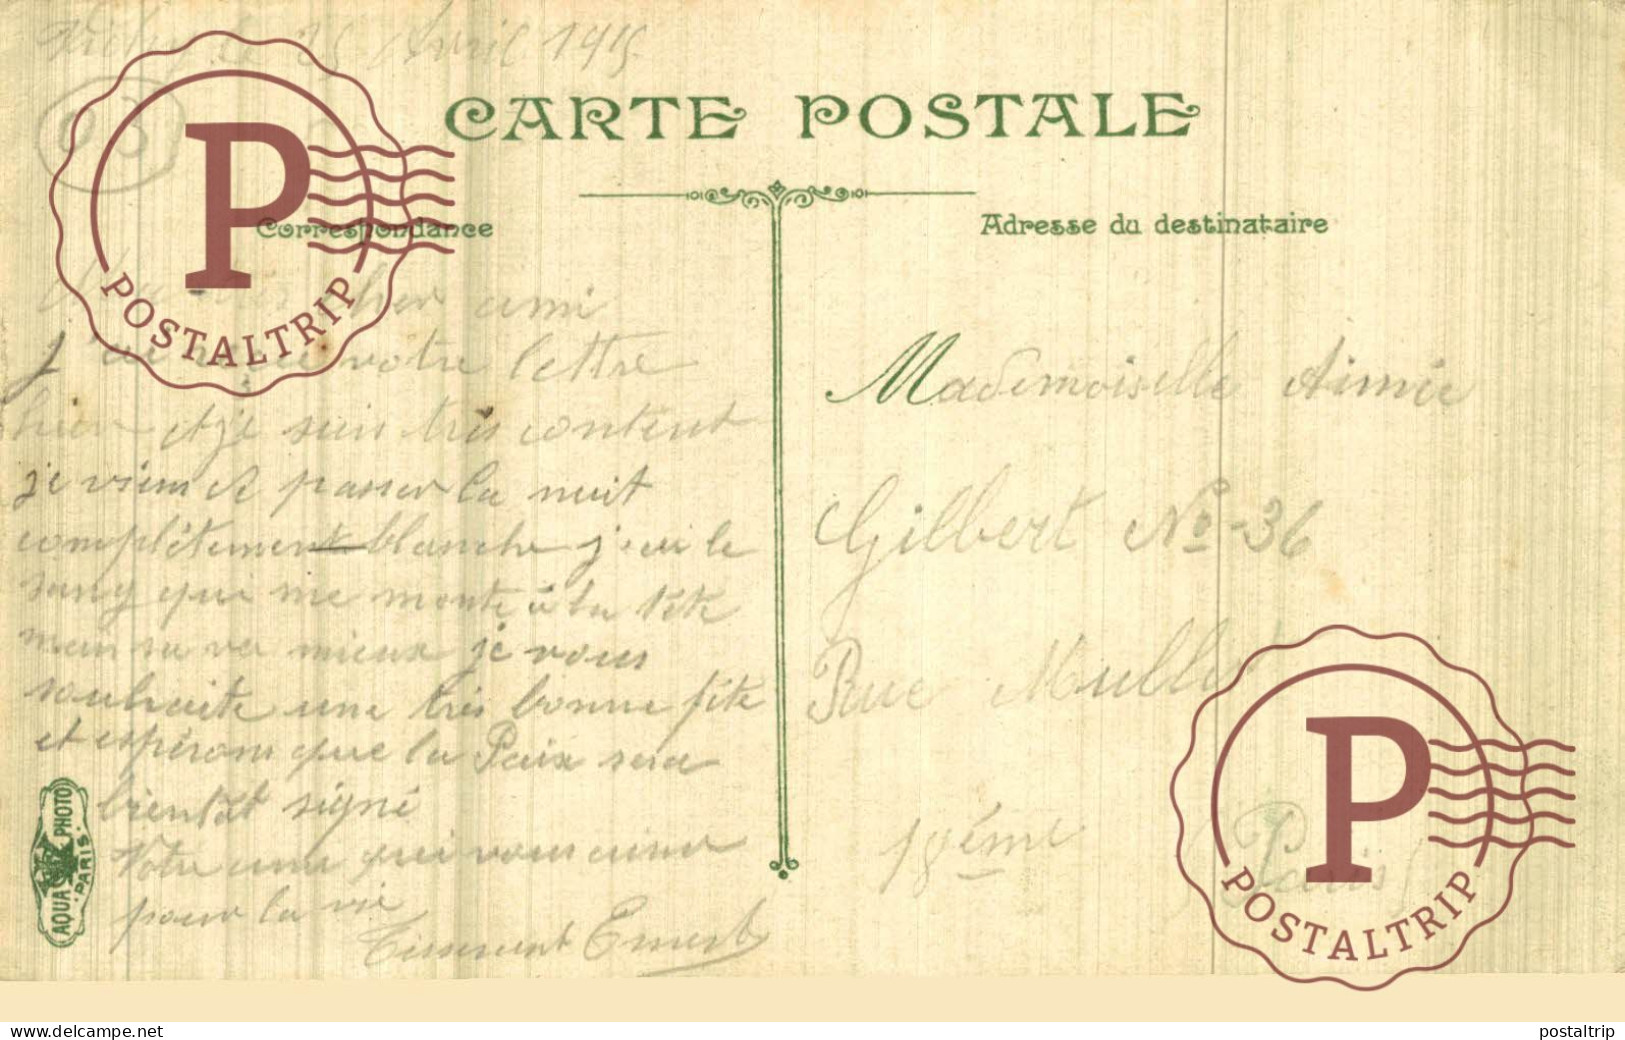 le 25 Avril 1915
CARTE POSTALE
63
Correspondance
Adresse du destinataire
cher ami
j'ai reçu votre lettre
hier et je suis très content
je viens de passer la nuit
complètement blanche j'ai le
sang qui me monte à la tête
mais sa va mieux je vous
souhaite une très bonne fête
et espérons que la Paix sera
bientôt signé
Votre ami qui vous aime
pour la vie
Tisserant Ernest
Mademoiselle Aimée
Gilbert No-36
Rue Muller
18ème
(Paris)
AQUA PHOTO
PARIS
P
POSTALTRIP
P
POSTALTRIP
www.delcampe.net
postaltrip